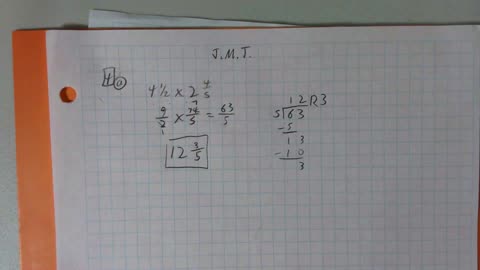 J.M.J.
4 a
4 1/2 x 2 4/5
9/2 x 14/5 = 63/5
7
1
12 3/5
12 R3
5 63
-5
13
-10
3